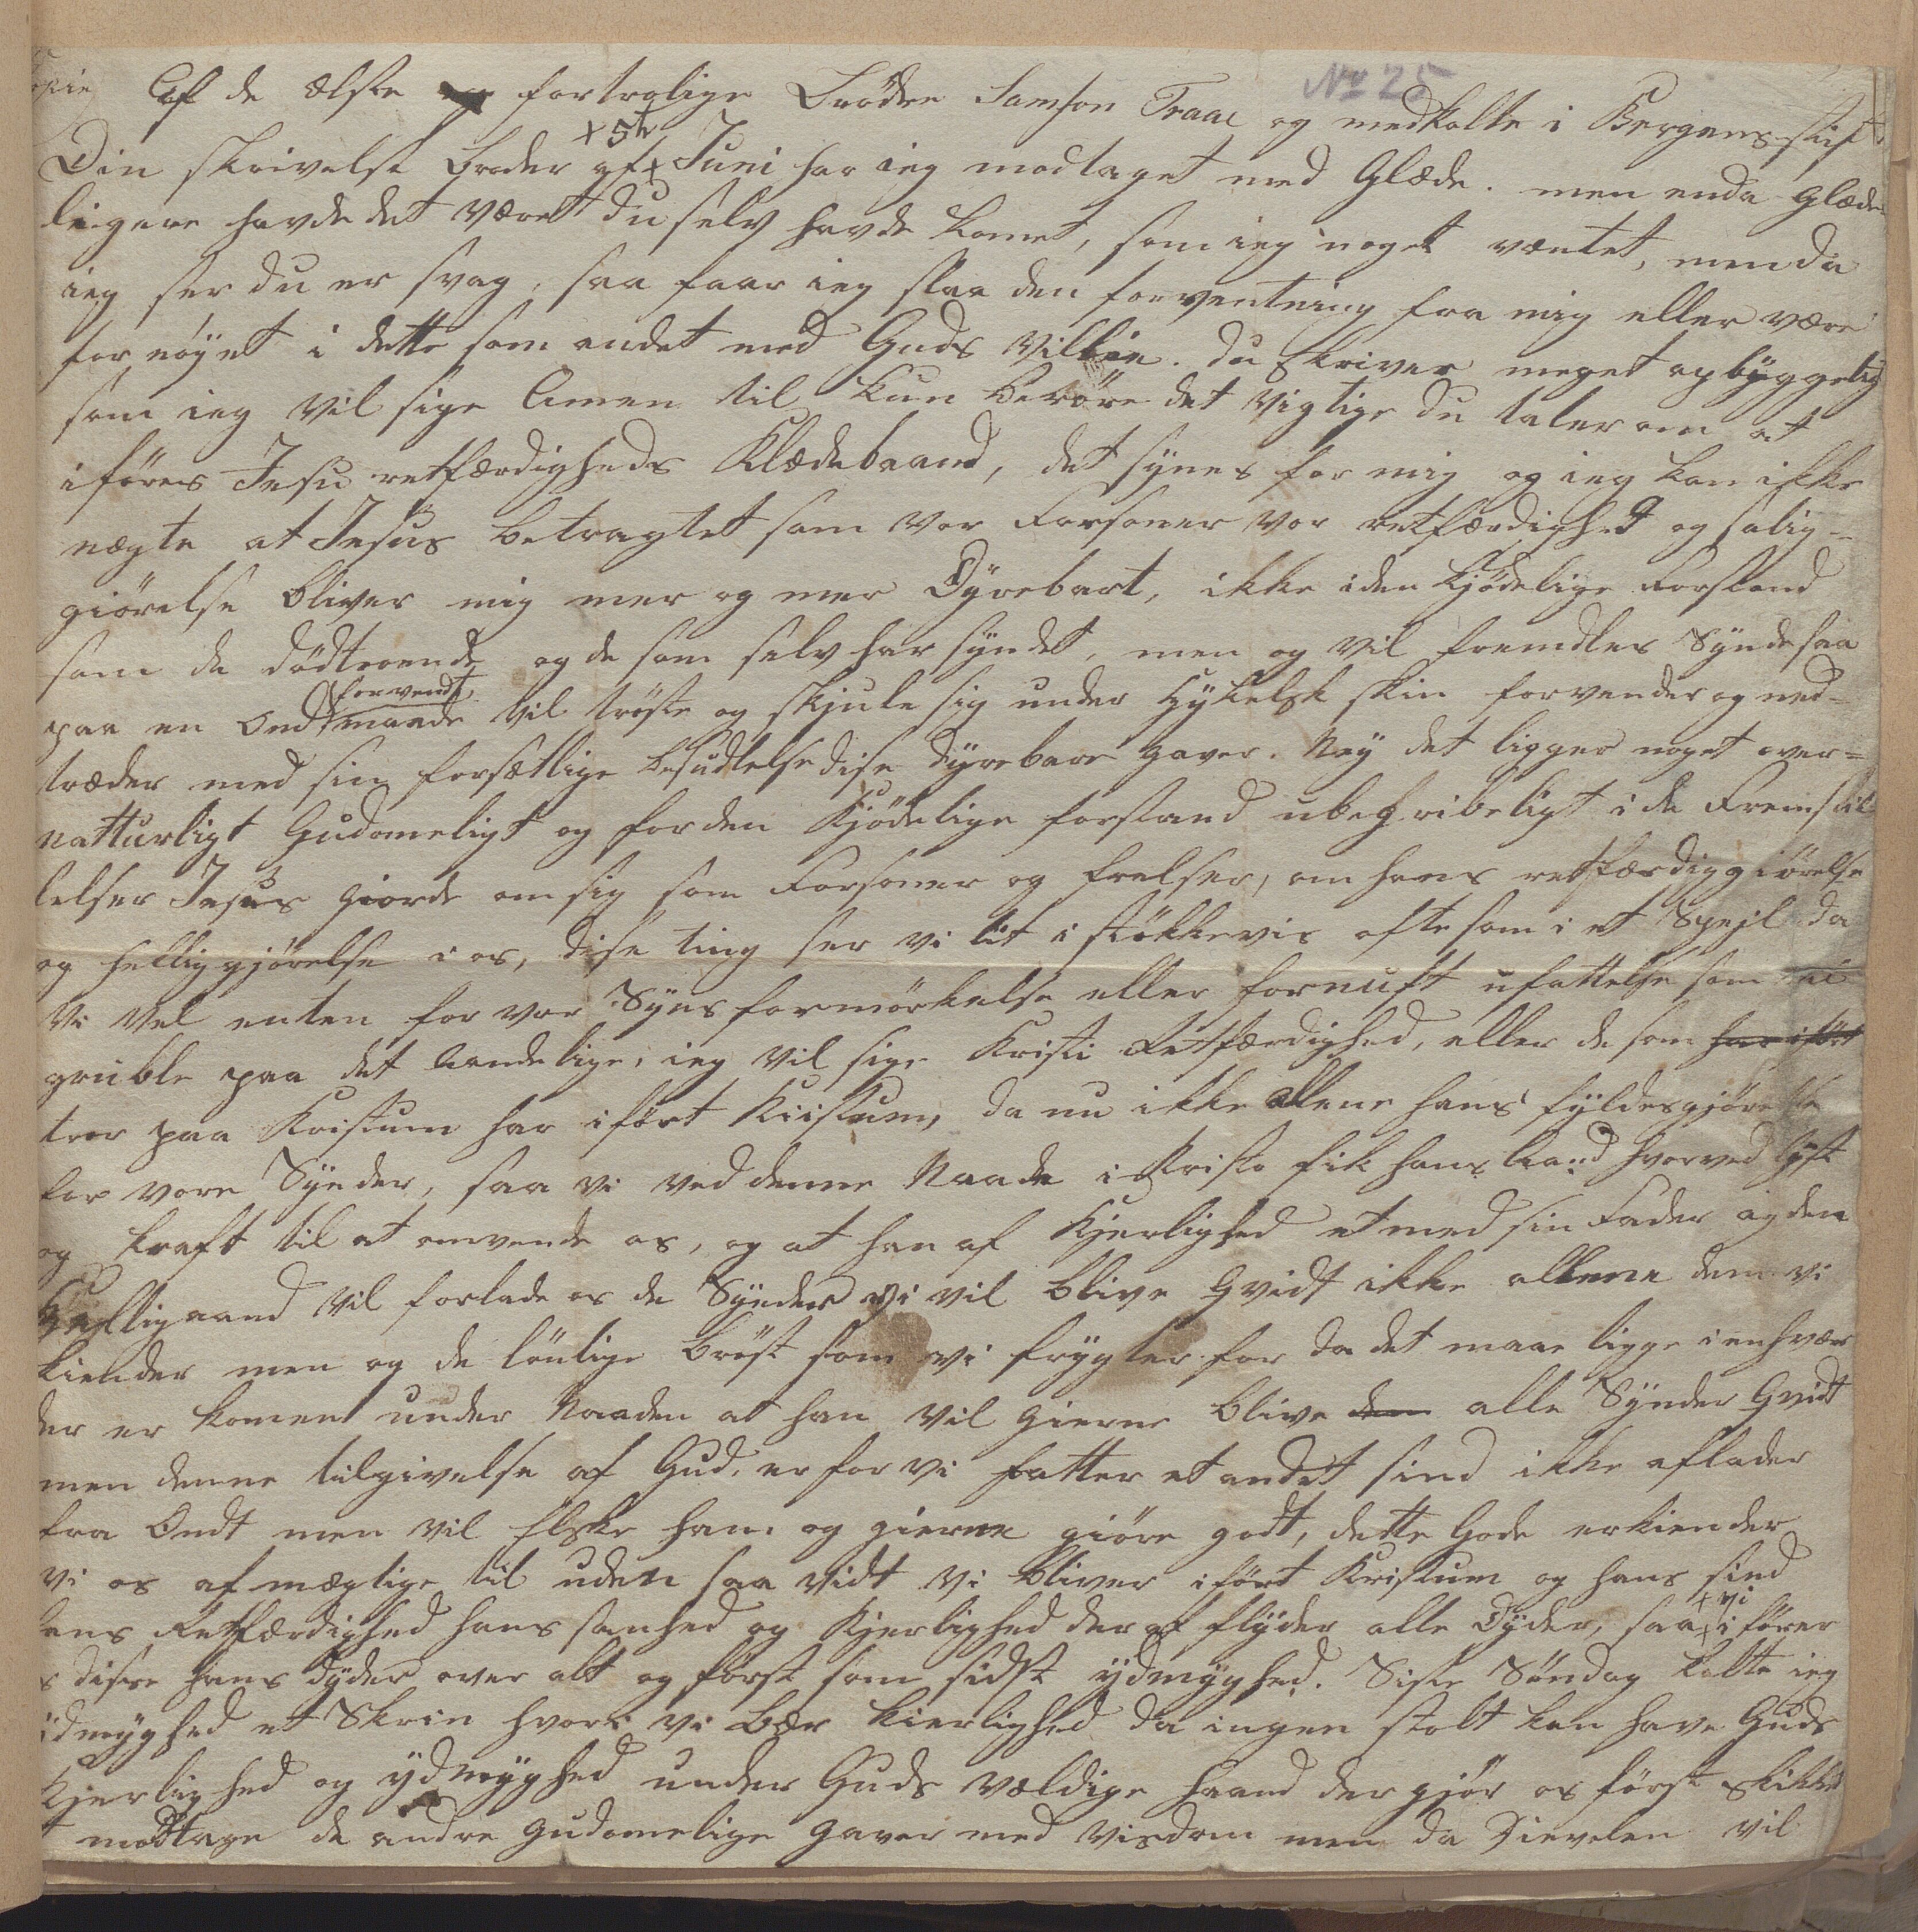 No 25
Copie Af de ælste og fortrolige Brödre Samson Traae og medkalte i Bergens stift
Din skrivelse broder af × 5te Juni har ieg modtaget med Glæde. men enda glæde-
ligere havde det været du selv havde komet, som ieg noget væntet, men da
ieg ser du er svag, saa faar ieg slaa den forventning fra mig eller være
fornöyet i dette som andet med Guds Villie. du skriver meget opbyggelig
som ieg vil sige Amen til kun beröre det vigtige du taler om at
iföres Jesu retfærdigheds Klædebaand, det synes for mig og ieg kan ikke
nægte at Jesus betragtet som vor Forsoner vor retfærdighed og salig-
giörelse bliver mig mer og mer Dyrebart, ikke i den kjödelige Forstand
som de dödtroende og de som selv har syndet, men og vil fremdeles Synde saa
paa en Ond forvendt maade vil tröste og skjule sig under hykelsk skin forvender og ned-
træder med sin forsætlige besudlelse dise dyrebare gaver. Ney det ligger noget over-
natturligt Gudomeligt og for den Kjödelige forstand ubegribeligt i de Fremstil
lelser Jesus giorde om sig som Forsoner og frelser, om hans retfærdiggiörelse
og helliggjörelse i os, dise ting ser vi lit i stökkevis ofte som i et Spejl da
vi vel enten for vor Syns formörkelse eller fornuft ufattelse som ei
gruble paa det aandelige, ieg vil sige Kristi Retfærdighed, eller de som har ifört
tror paa Kristum har ifört Kristum, da nu ikke allene hans fyldesgjörelse
for vore Synder, saa vi ved denne Naade i Kristo fik hans Aand hvorved lyst
og kraft til at omvende os, og at han af Kjerlighed et med sin Fader og den
Helligaand vil forlade os de Synder vi vil blive qvidt ikke allene dem vi
kiender men og de lönlige bröst som vi frygter for da det maae ligge i enhver
der er komen under Naaden at han vil gierne blive dem alle Synder Qvidt
men denne tilgivelse af Gud. er for vi fatter et andet sind ikke aflader
fra Ondt men vil Elske ham og gierne giöre godt, dette Gode erkiender
vi os afmægtige til uden saa vidt vi bliver ifört Kristum og hans sind
hans Retfærdighed hans sanhed og Kjerlighed der af flyder alle Dyder, saa × vi iförer
s disse hans Dyder over alt og först som sidst ydmyghed. Siste Söndag kalte ieg
idmyghed et Skrin hvori vi bær kierlighed da ingen stolt kan have Guds
Kjerlighed og ydmyghed under Guds vældige haand der gjör os först skikket
modtage de andre gudomelige gaver med visdom men da Dievelen vil